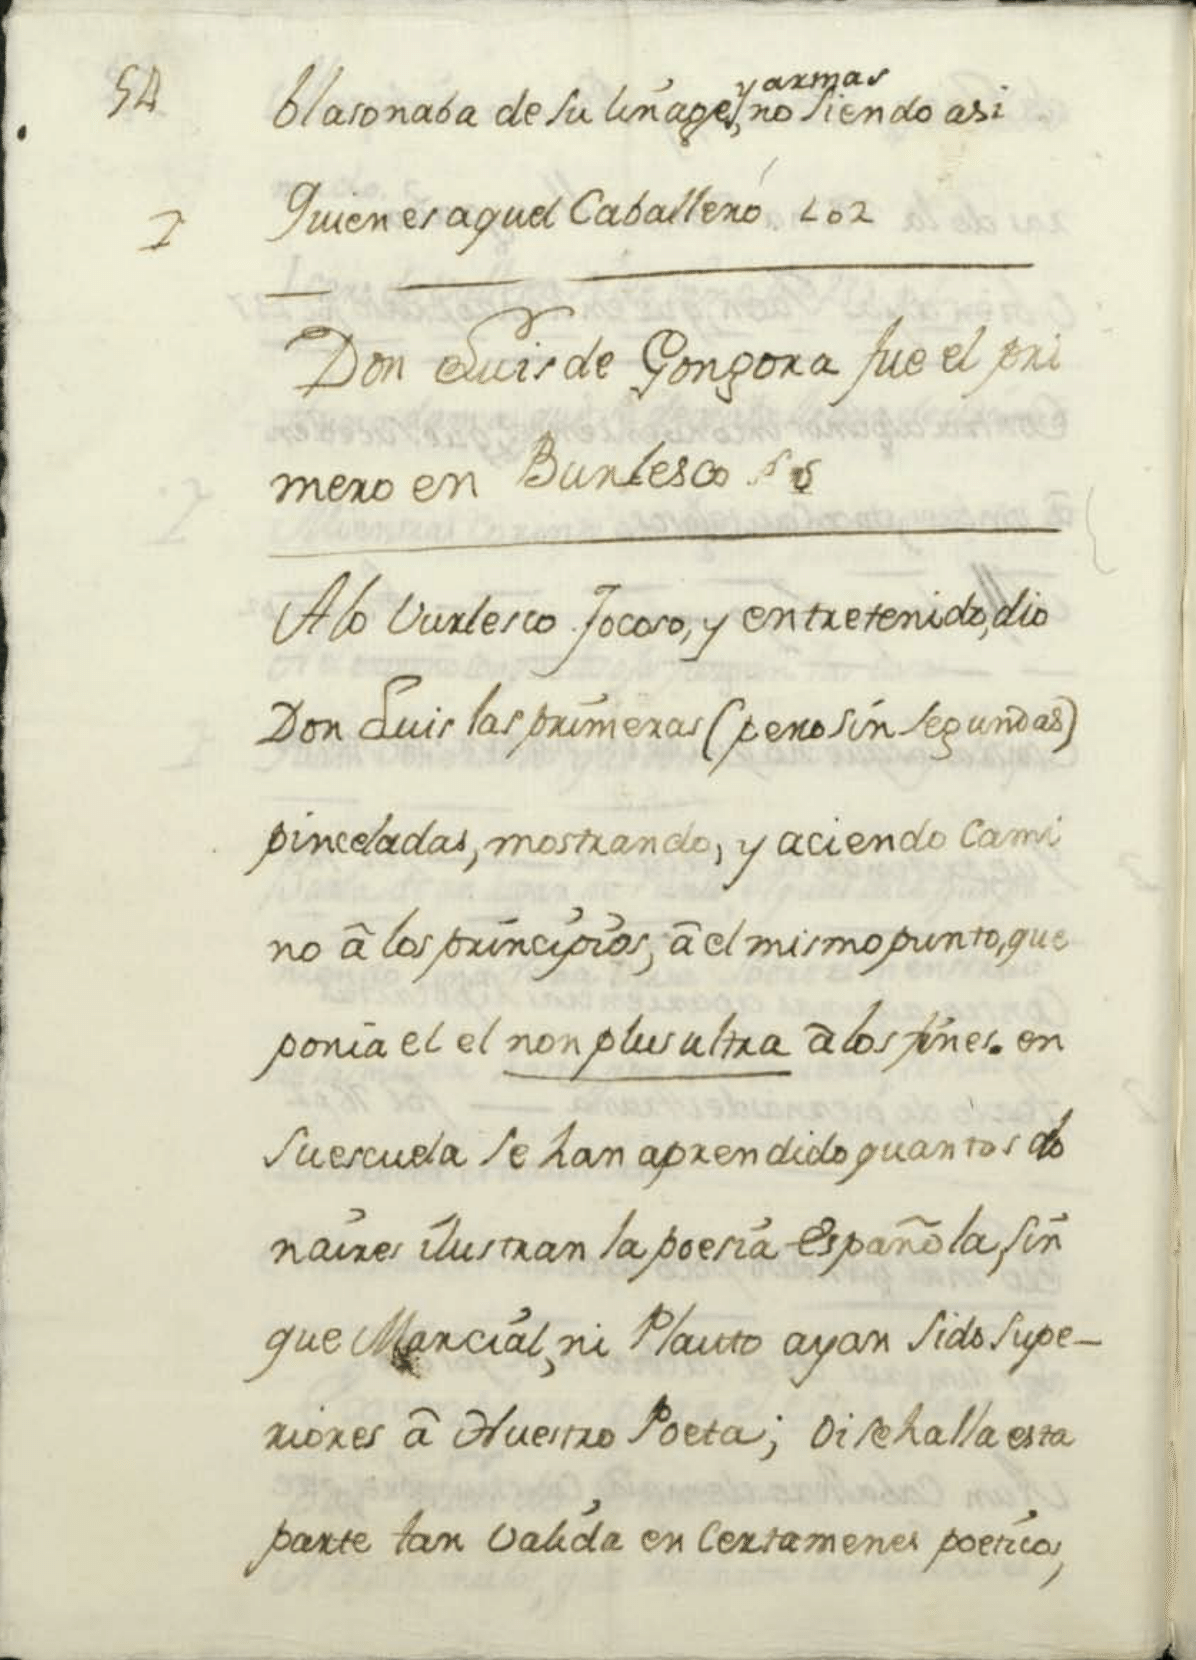 54
y armas
blasonaba de su linage, no siendo asi
I
Quien es aquel Caballero 202
Don Luis de Gongora fue el pri
mero en Burlesco
A lo Vurlesco Jocoso, y entretenido, dio
Don Luis las primeras (pero sin segundas)
pinceladas, mostrando, y aciendo Cami
no â los principios, â el mismo punto, que
ponia el el non plus ultra â los fines. en
su escuela se han aprendido quantos do
naires ilustran la poesia Española, sin
que Marcial, ni Plauto ayan sido supe-
riores â Nuestro Poeta; Oi se halla esta
parte tan Valida en Certamenes poeticos,